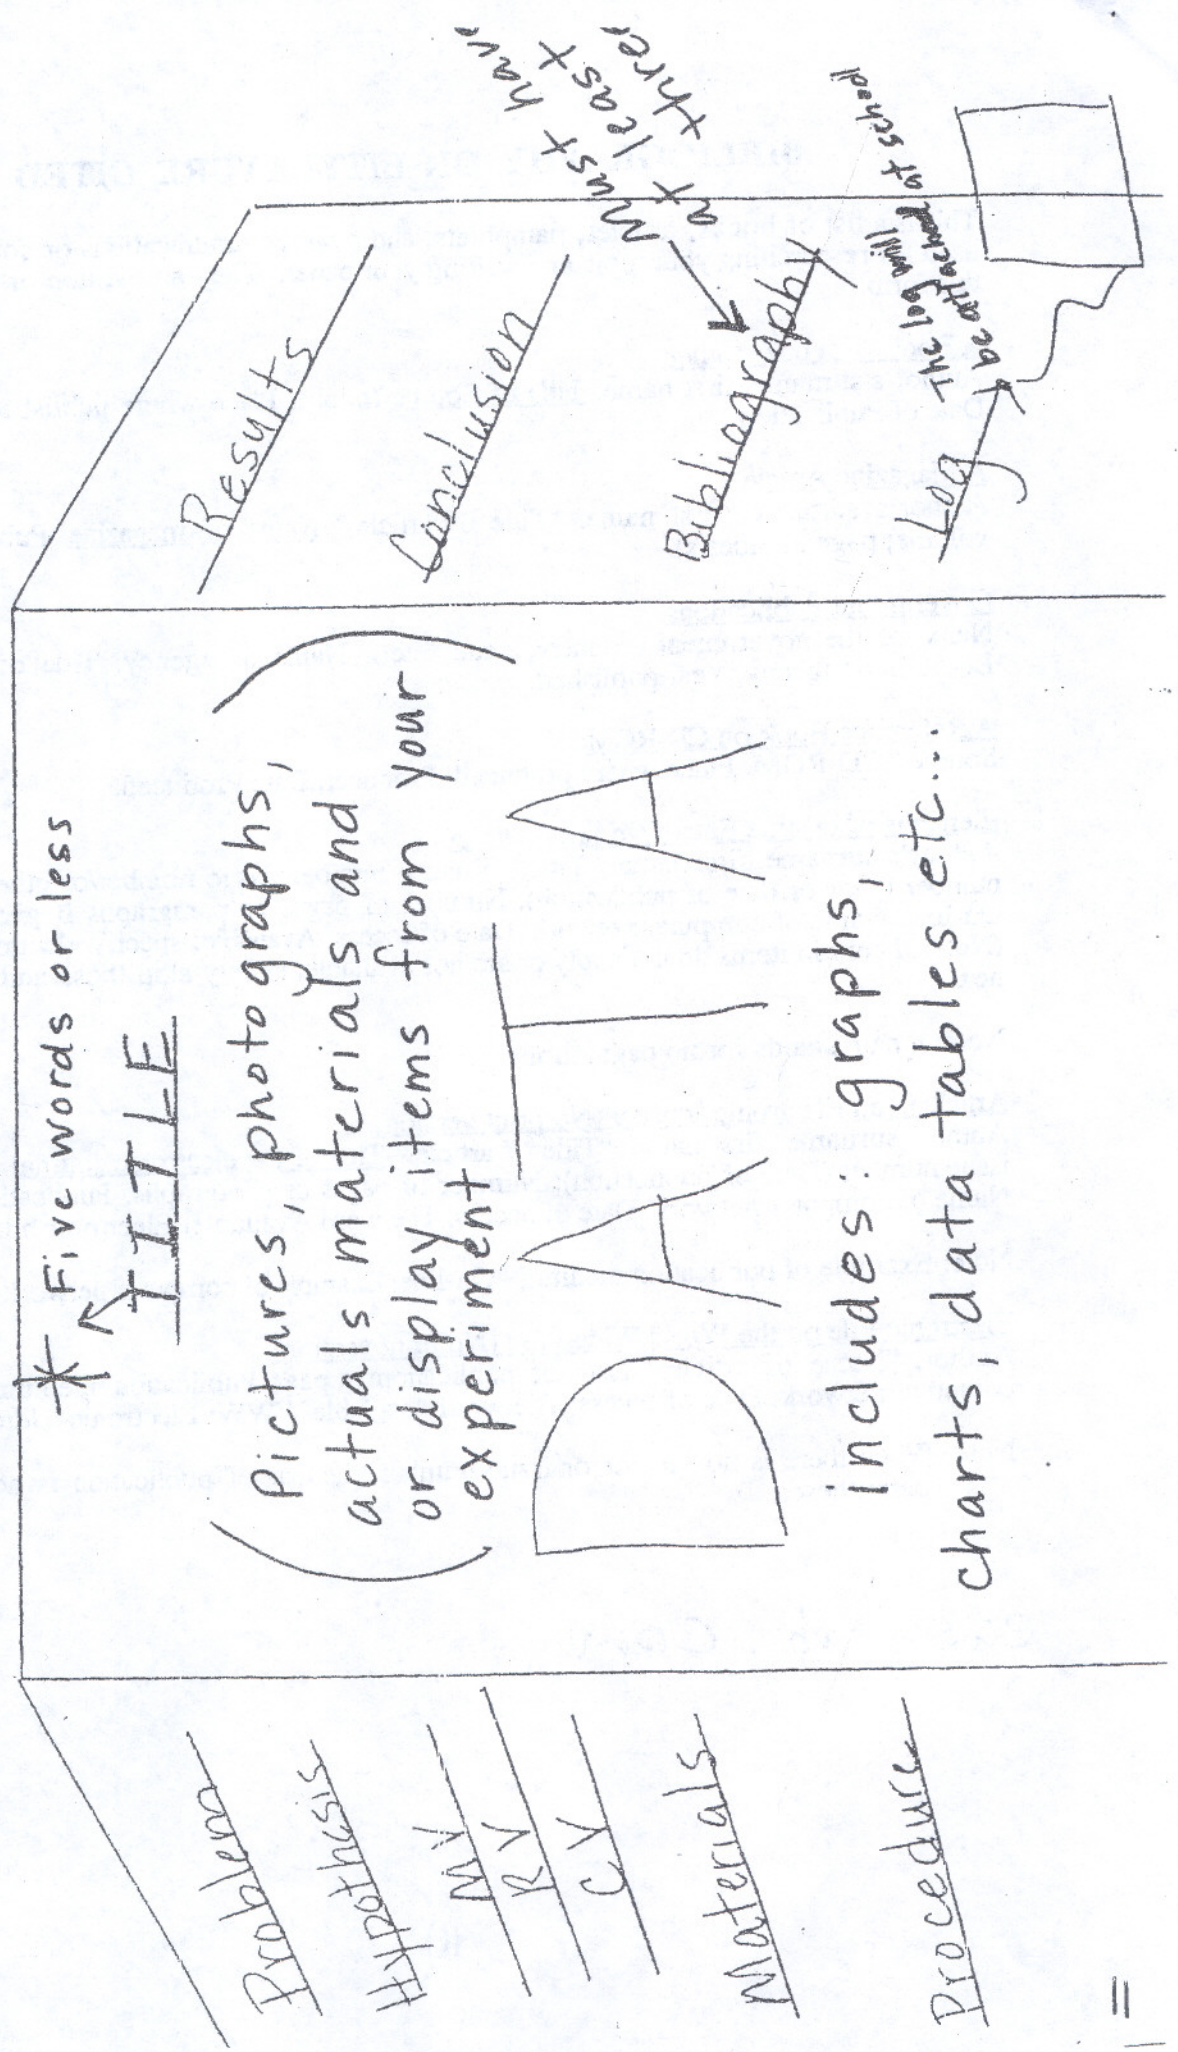 Problem
Hypothesis
MV
RV
CV
Materials
Procedure
* Five words or less
TITLE
(Pictures, photographs,
actuals materials and
or display items from your
experiment)
DATA
Includes: graphs,
charts, data tables etc...
Results
Conclusion
Must have
at least
three
Bibliography
Log
The log will
be attached at school